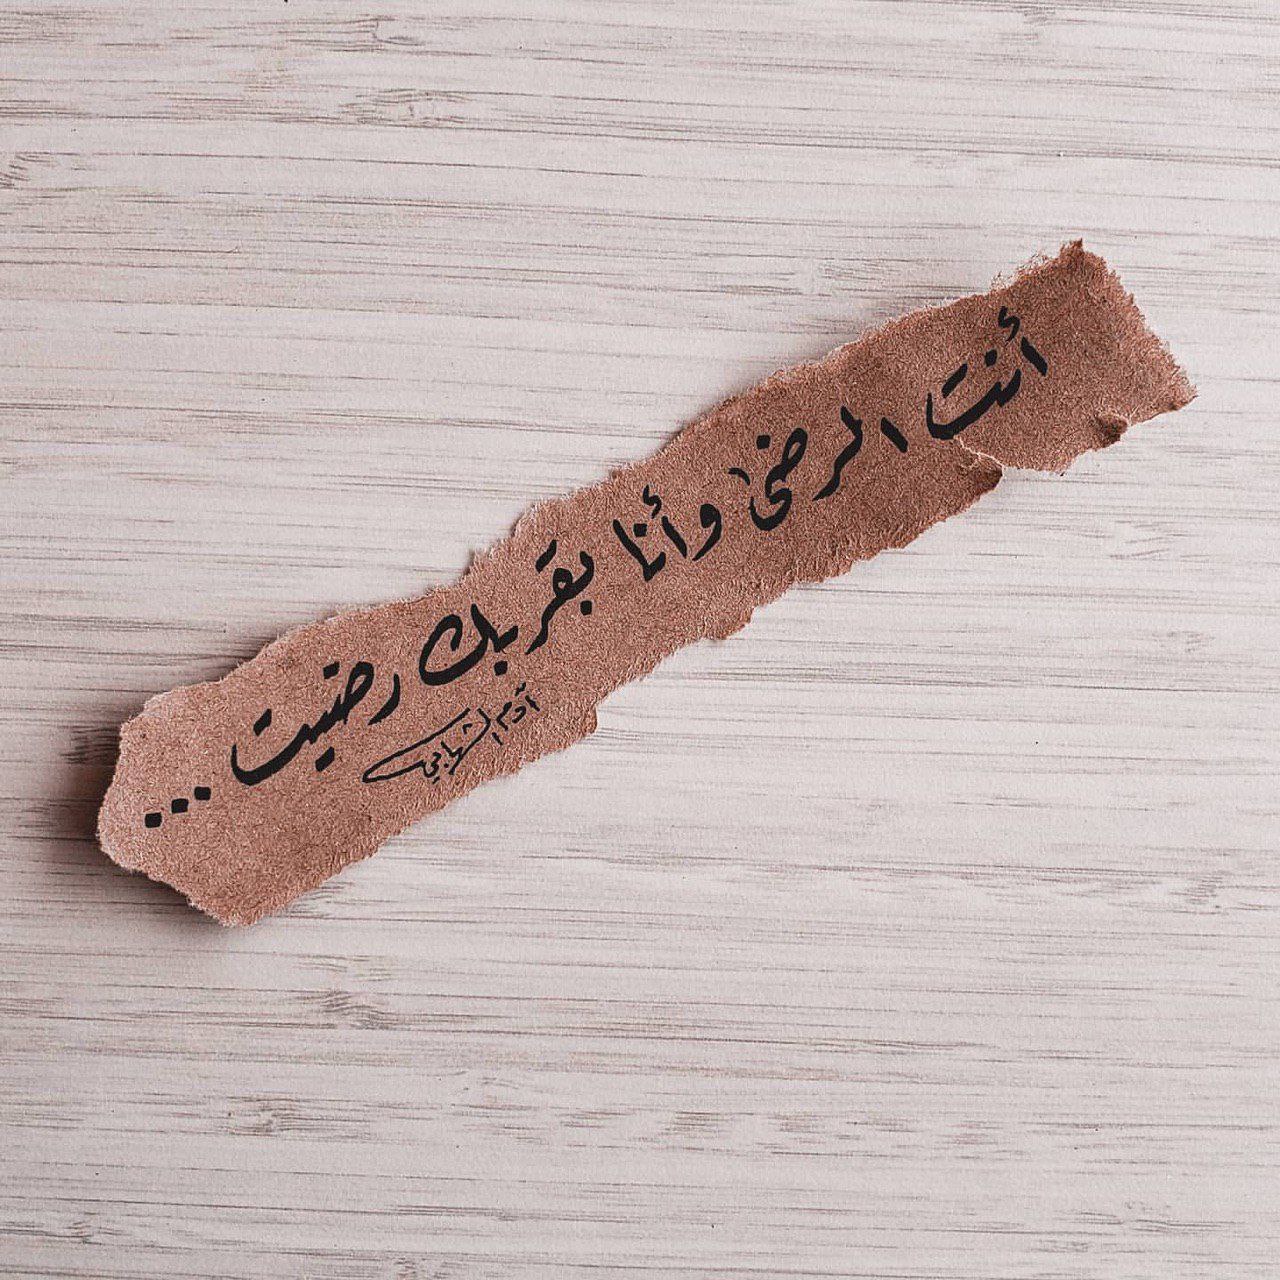 أنت الرضىٰ وأنا بقربك رضيت ...
آدم الشهاجي